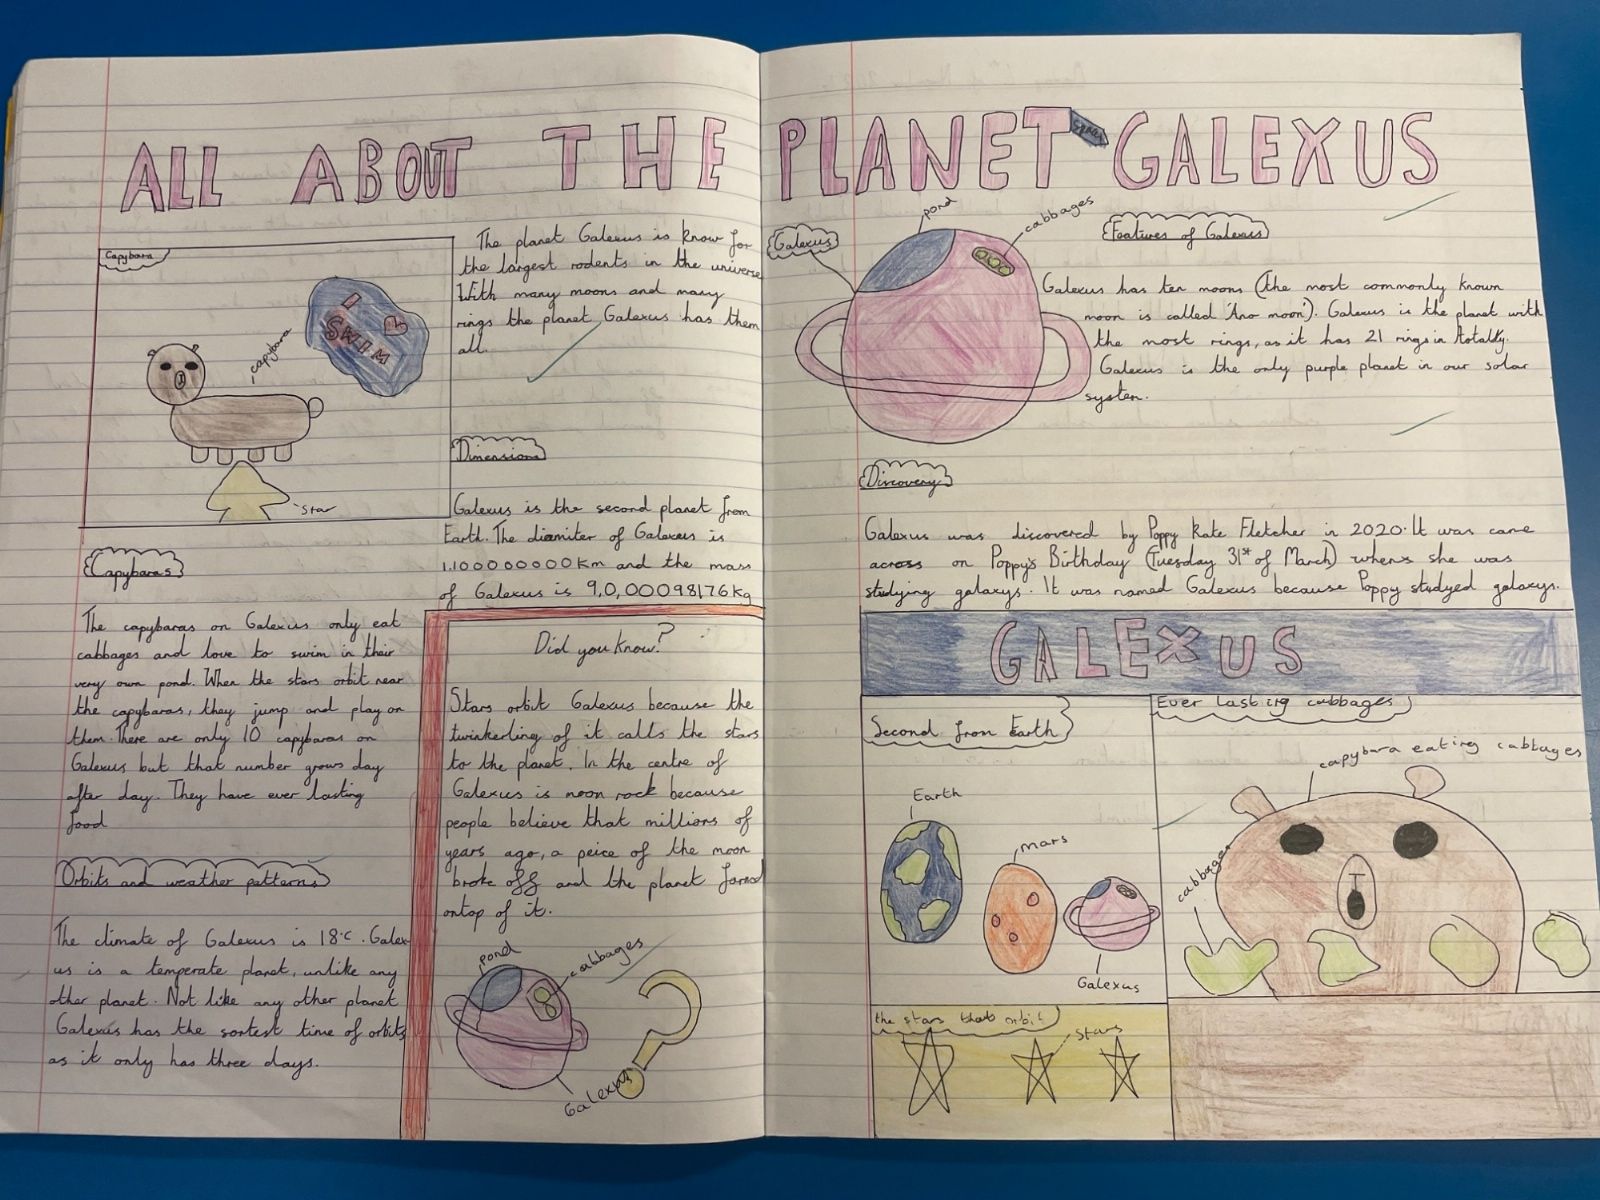 ALL ABOUT THE PLANET GALEXUS
space
Capybara
capybara
I
SWIM
star
The planet Galexus is know for
the largest rodents in the universe.
With many moons and many
rings the planet Galexus has them
all.
Dimensions
Galexus is the second planet from
Earth. The diamiter of Galexus is
1,100000000Km and the mass
of Galexus is 9,0,00098176kg
Capybaras
The capybaras on Galexus only eat
cabbages and love to swim in their
very own pond. When the stars orbit near
the capybaras, they jump and play on
them. There are only 10 capybaras on
Galexus but that number grows day
after day. They have ever lasting
food
Orbits and weather patterns
The climate of Galexus is 18°c. Galex
us is a temperate planet, unlike any
other planet. Not like any other planet
Galexus has the sortest time of orbits
as it only has three days.
Did you know?
Stars orbit Galexus because the
twinkerling of it calls the stars
to the planet. In the centre of
Galexus is moon rock because
people believe that millions of
years ago, a peice of the moon
broke off and the planet formed
ontop of it.
pond
cabbages
Galexus
Galexus
pond
cabbages
Features of Galexus
Galexus has ten moons (the most commonly known
moon is called
Galexus is the planet with
the most rings, as it has 21 rings in totally.
Galexus is the only purple planet in our solar
system.
Discovery
Galexus was discovered by Poppy Kate Fletcher in 2020. It was came
across on Poppy's Birthday (Tuesday 31st of March) when she was
studying galaxys. It was named Galexus because Poppy studyed galaxys.
GALEXUS
Second from Earth
Earth
Mars
Galexus
the stars that orbit
stars
Ever lasting cabbages
capybara eating cabbages
cabbages